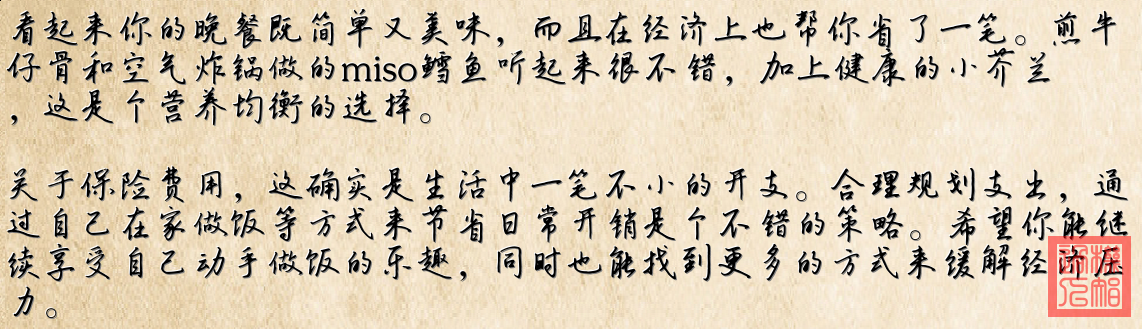 看起来你的晚餐既简单又美味，而且在经济上也帮你省了一笔。煎牛
仔骨和空气炸锅做的miso鳕鱼听起来很不错，加上健康的小芥兰
，这是个营养均衡的选择。
关于保险费用，这确实是生活中一笔不小的开支。合理规划支出，通
过自己在家做饭等方式来节省日常开销是个不错的策略。希望你能继
续享受自己动手做饭的乐趣，同时也能找到更多的方式来缓解经济压
力。